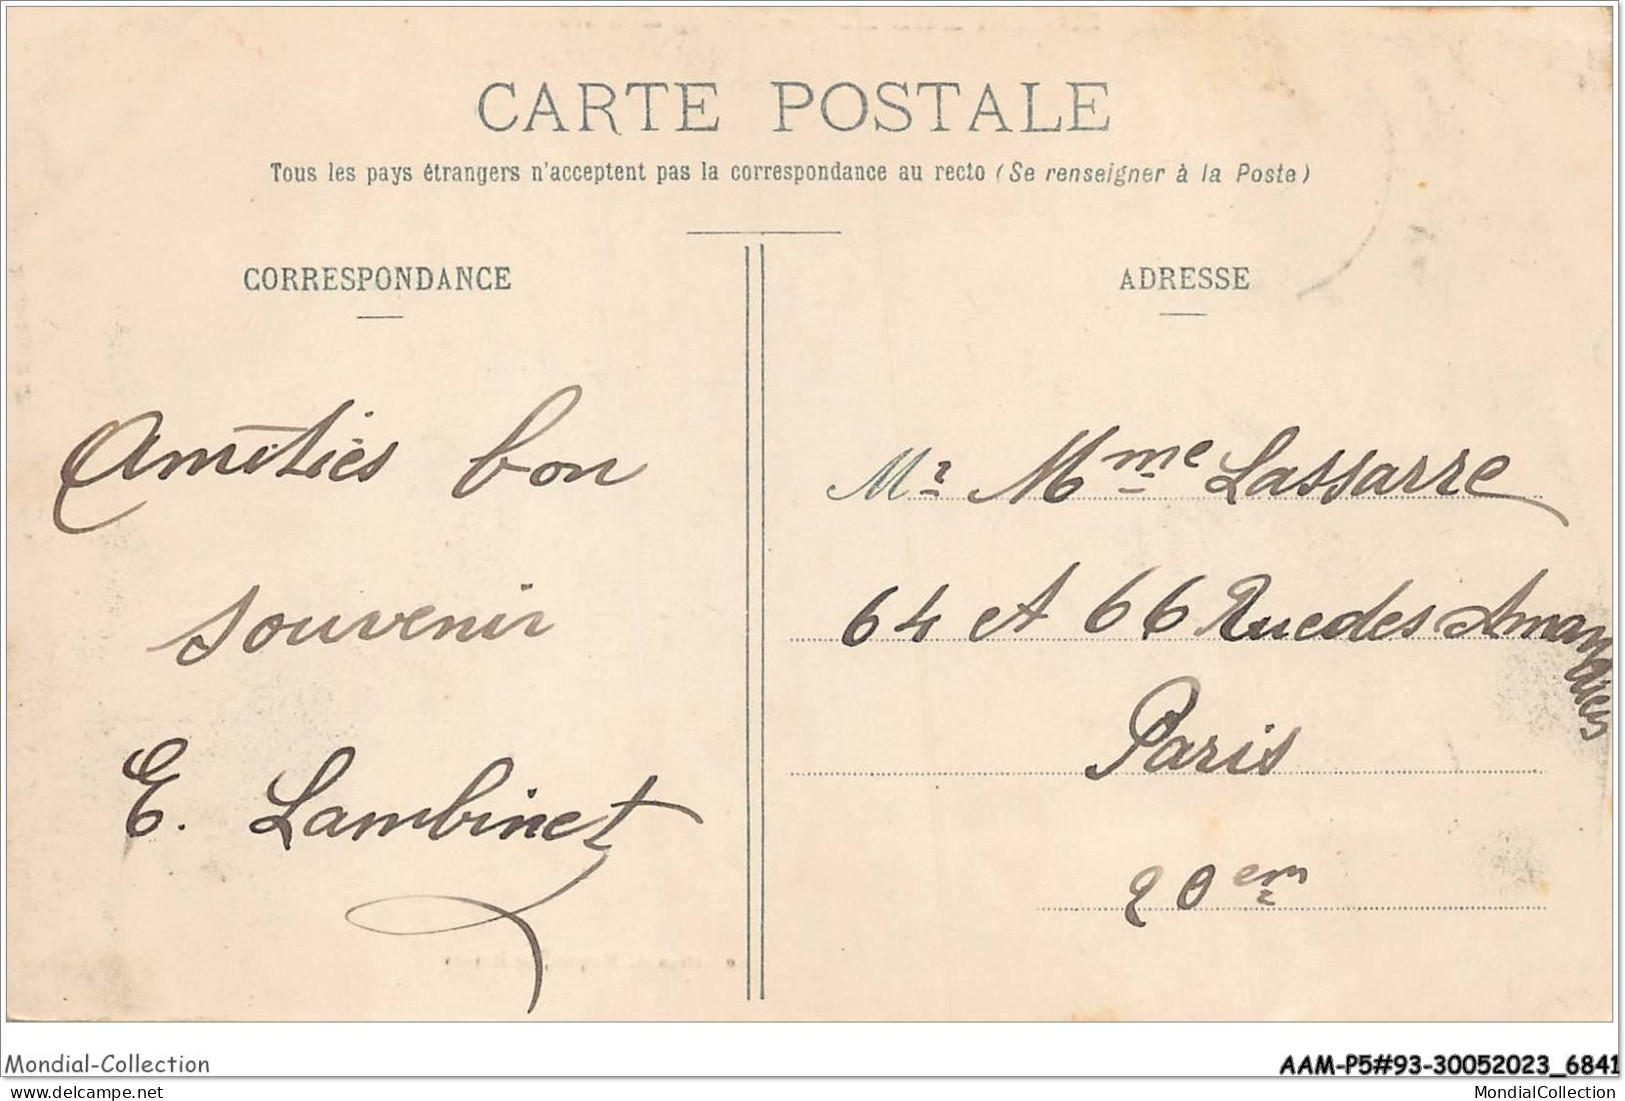 CARTE POSTALE
Tous les pays étrangers n'acceptent pas la correspondance au recto (Se renseigner à la Poste)
CORRESPONDANCE
Amitiés bon
souvenir
E. Lambinet
ADRESSE
Mr Mme Lassarre
64 et 66 Rue des Amandiers
Paris
20em
Mondial-Collection
AAM-P5#93-30052023_6841
delcampe.net
MondialCollection